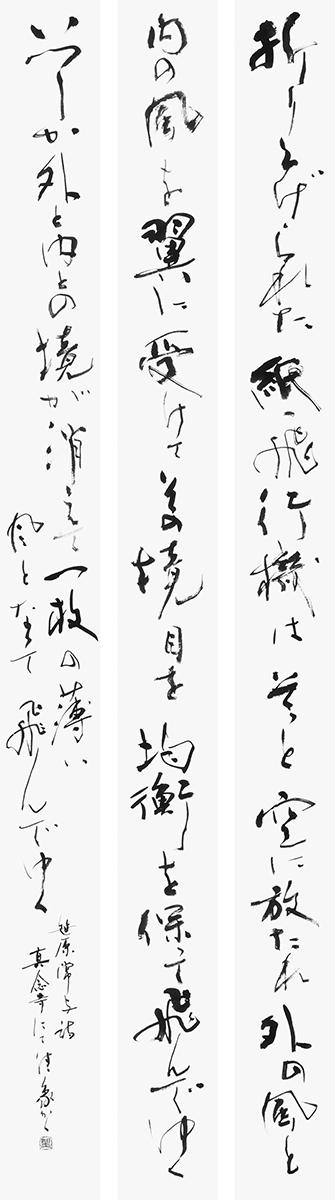 折り上げられた紙飛行機は そっと 空に放たれ 外の風と
内の風を翼に受けて その境目を 均衡を保って飛んでゆく
いつしか外と内との境が消えて 一枚の薄い
風となって 飛んでゆく
笹原常与詩
真念寺にて 佳象かく